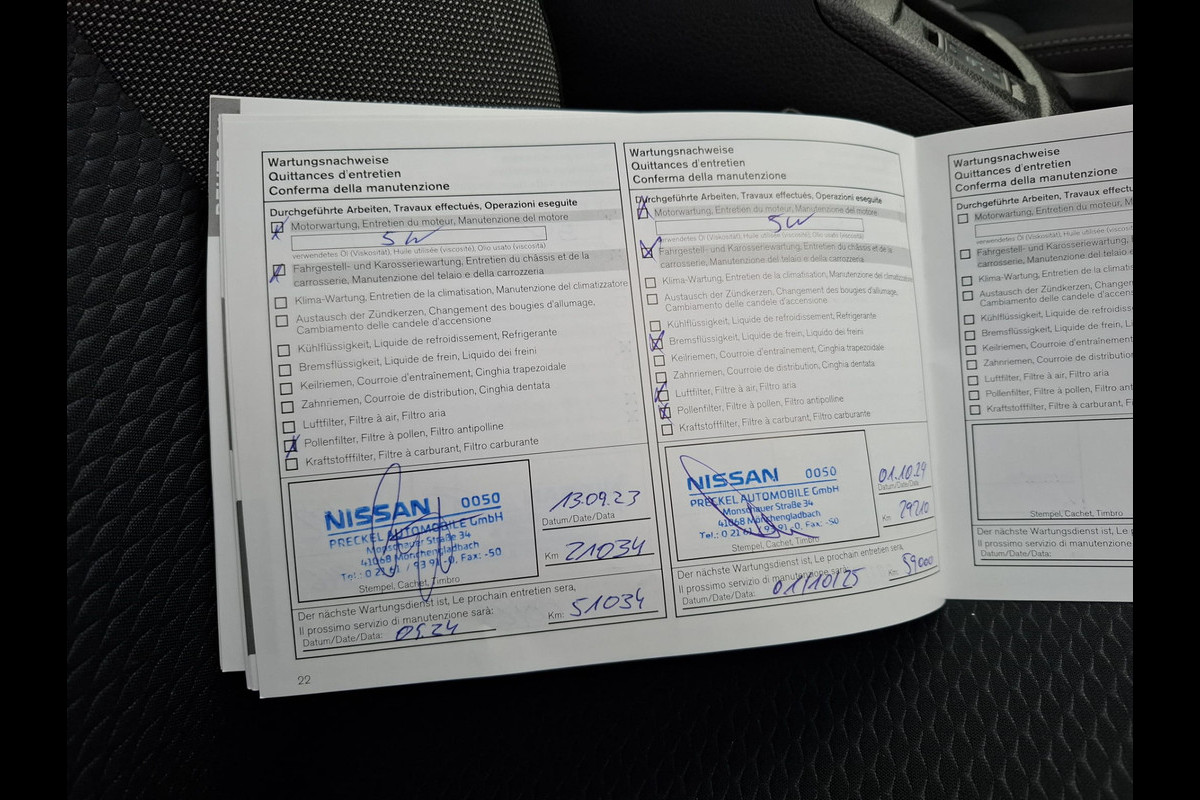 Wartungsnachweise
Quittances d'entretien
Conferma della manutenzione
Durchgeführte Arbeiten, Travaux effectués, Operazioni eseguite
Motorwartung, Entretien du moteur, Manutenzione del motore
5W
verwendetes Öl (Viskosität), Huile utilisée (viscosité), Olio usato (viscosità)
Fahrgestell- und Karosseriewartung, Entretien du châssis et de la
carrosserie, Manutenzione del telaio e della carrozzeria
Klima-Wartung, Entretien de la climatisation, Manutenzione del climatizzatore
Austausch der Zündkerzen, Changement des bougies d'allumage,
Cambiamento delle candele d'accensione
Kühlflüssigkeit, Liquide de refroidissement, Refrigerante
Bremsflüssigkeit, Liquide de frein, Liquido dei freini
Keilriemen, Courroie d'entraînement, Cinghia trapezoidale
Zahnriemen, Courroie de distribution, Cinghia dentata
Luftfilter, Filtre à air, Filtro aria
Pollenfilter, Filtre à pollen, Filtro antipolline
Kraftstofffilter, Filtre à carburant, Filtro carburante
NISSAN 0050
PRECKEL AUTOMOBILE GmbH
Monschauer Straße 34
41068 Mönchengladbach
Tel.: 0 21 61 / 93 91 -0, Fax: -50
Stempel, Cachet, Timbro
13.09.23
Datum/Date/Data
Km 21034
Der nächste Wartungsdienst ist, Le prochain entretien sera,
Il prossimo servizio di manutenzione sarà:
Datum/Date/Data: 09.24
Km: 51034
22
Wartungsnachweise
Quittances d'entretien
Conferma della manutenzione
Durchgeführte Arbeiten, Travaux effectués, Operazioni eseguite
Motorwartung, Entretien du moteur, Manutenzione del motore
5W
verwendetes Öl (Viskosität), Huile utilisée (viscosité), Olio usato (viscosità)
Fahrgestell- und Karosseriewartung, Entretien du châssis et de la
carrosserie, Manutenzione del telaio e della carrozzeria
Klima-Wartung, Entretien de la climatisation, Manutenzione del climatizzatore
Austausch der Zündkerzen, Changement des bougies d'allumage,
Cambiamento delle candele d'accensione
Kühlflüssigkeit, Liquide de refroidissement, Refrigerante
Bremsflüssigkeit, Liquide de frein, Liquido dei freini
Keilriemen, Courroie d'entraînement, Cinghia trapezoidale
Zahnriemen, Courroie de distribution, Cinghia dentata
Luftfilter, Filtre à air, Filtro aria
Pollenfilter, Filtre à pollen, Filtro antipolline
Kraftstofffilter, Filtre à carburant, Filtro carburante
NISSAN 0050
PRECKEL AUTOMOBILE GmbH
Monschauer Straße 34
41068 Mönchengladbach
Tel.: 0 21 61 / 93 91 -0, Fax: -50
Stempel, Cachet, Timbro
01.10.24
Datum/Date/Data
Km 29210
Der nächste Wartungsdienst ist, Le prochain entretien sera,
Il prossimo servizio di manutenzione sarà:
Datum/Date/Data: 01/10/25
Km: 59000
Wartungsnachweise
Quittances d'entretien
Conferma della manutenzione
Durchgeführte Arbeiten, Travaux effect
Motorwartung, Entretien du moteur, M
verwendetes Öl (Viskosität), Huile utilisée (viscosité)
Fahrgestell- und Karosseriewartung, E
carrosserie, Manutenzione del telaio e
Klima-Wartung, Entretien de la climatis
Austausch der Zündkerzen, Changem
Cambiamento delle candele d'accens
Kühlflüssigkeit, Liquide de refroidiss
Bremsflüssigkeit, Liquide de frein, Li
Keilriemen, Courroie d'entraînement
Zahnriemen, Courroie de distributio
Luftfilter, Filtre à air, Filtro aria
Pollenfilter, Filtre à pollen, Filtro ant
Kraftstofffilter, Filtre à carburant, F
Stempel, Cachet, Timbro
Der nächste Wartungsdienst ist, Le pro
Il prossimo servizio di manutenzione
Datum/Date/Data: